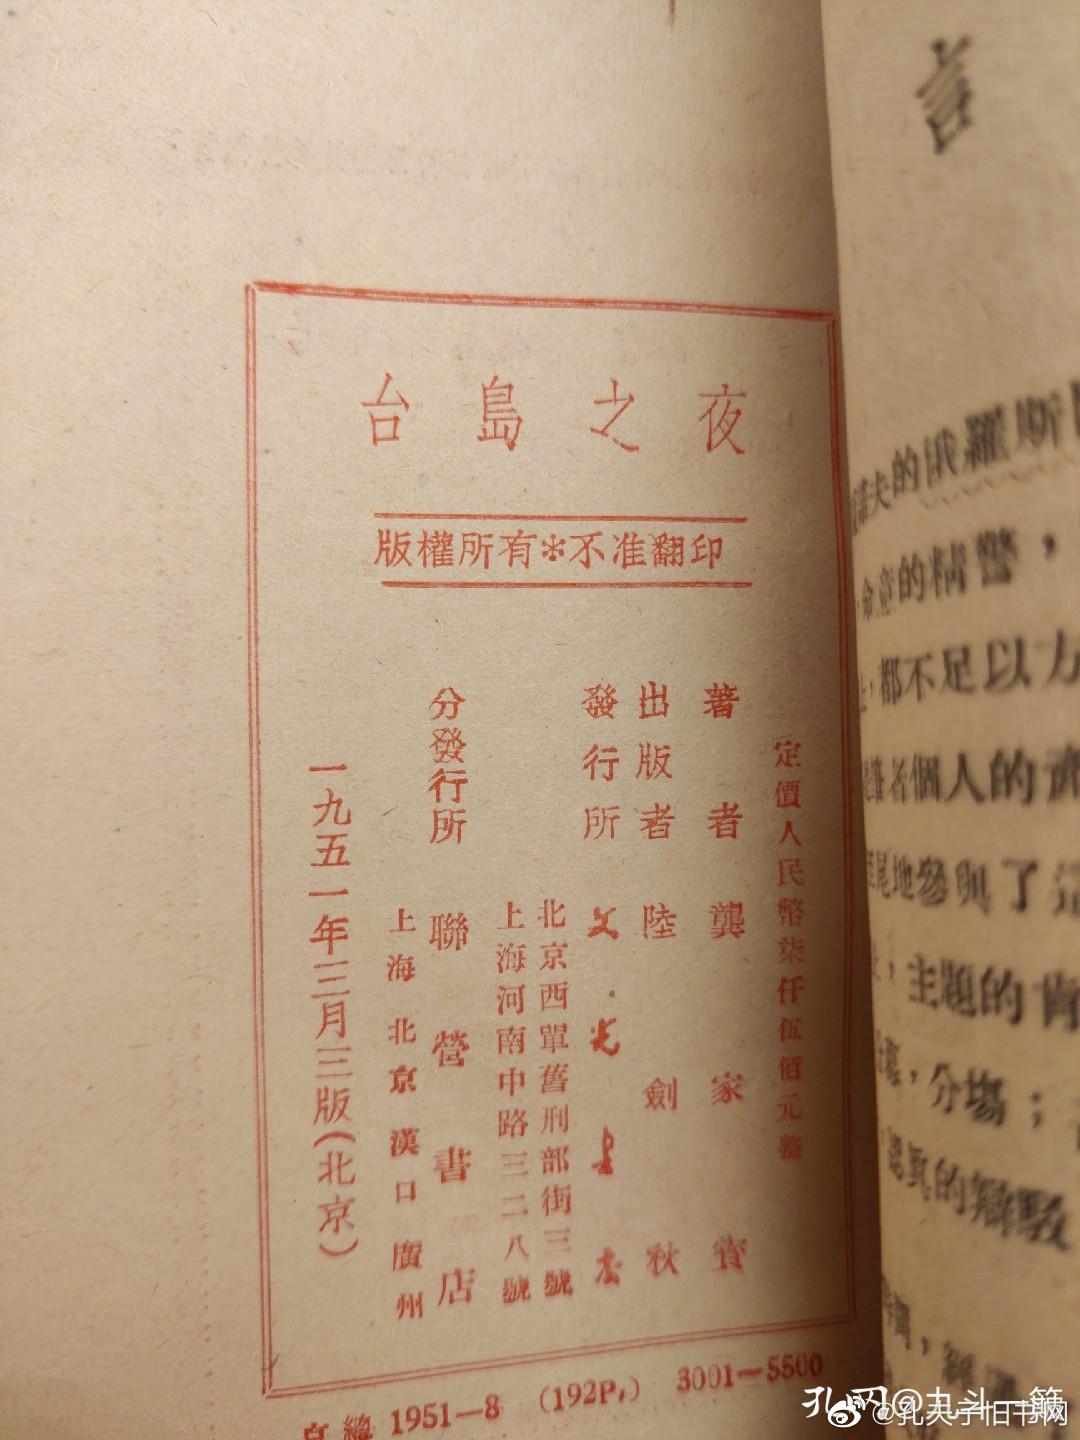 台島之夜
版權所有✻不准翻印
定價人民幣柒仟伍佰元整
著者 龔家賓
出版者 陸劍秋
發行所 文光書店
北京西單舊刑部街三號
上海河南中路三二八號
分發行所 聯營書店
上海 北京 漢口 廣州
一九五一年三月三版(北京)
京總 1951—8 (192P.) 3001—5500
言
夫的俄羅斯
命意的精警，
都不足以方
著個人的
尾地參與了這
，主題的肯
，分場；
認真的辯駁
孔网@九斗一簞
@孔夫子旧书网